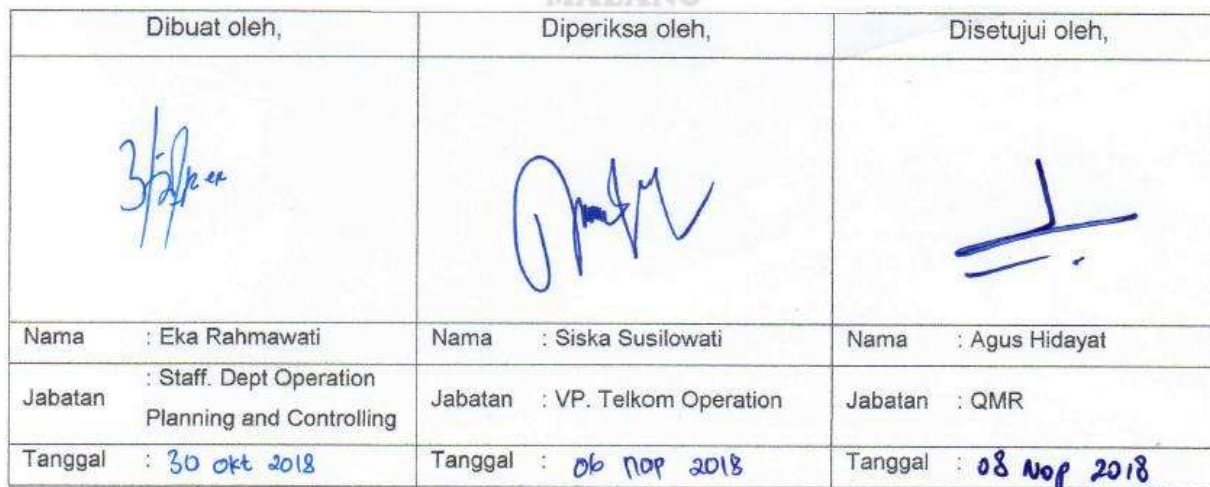 MALANG
Dibuat oleh,
Diperiksa oleh,
Disetujui oleh,
Nama : Eka Rahmawati
Nama : Siska Susilowati
Nama : Agus Hidayat
Jabatan : Staff. Dept Operation
Planning and Controlling
Jabatan : VP. Telkom Operation
Jabatan : QMR
Tanggal : 30 okt 2018
Tanggal : 06 nop 2018
Tanggal : 08 Nop 2018